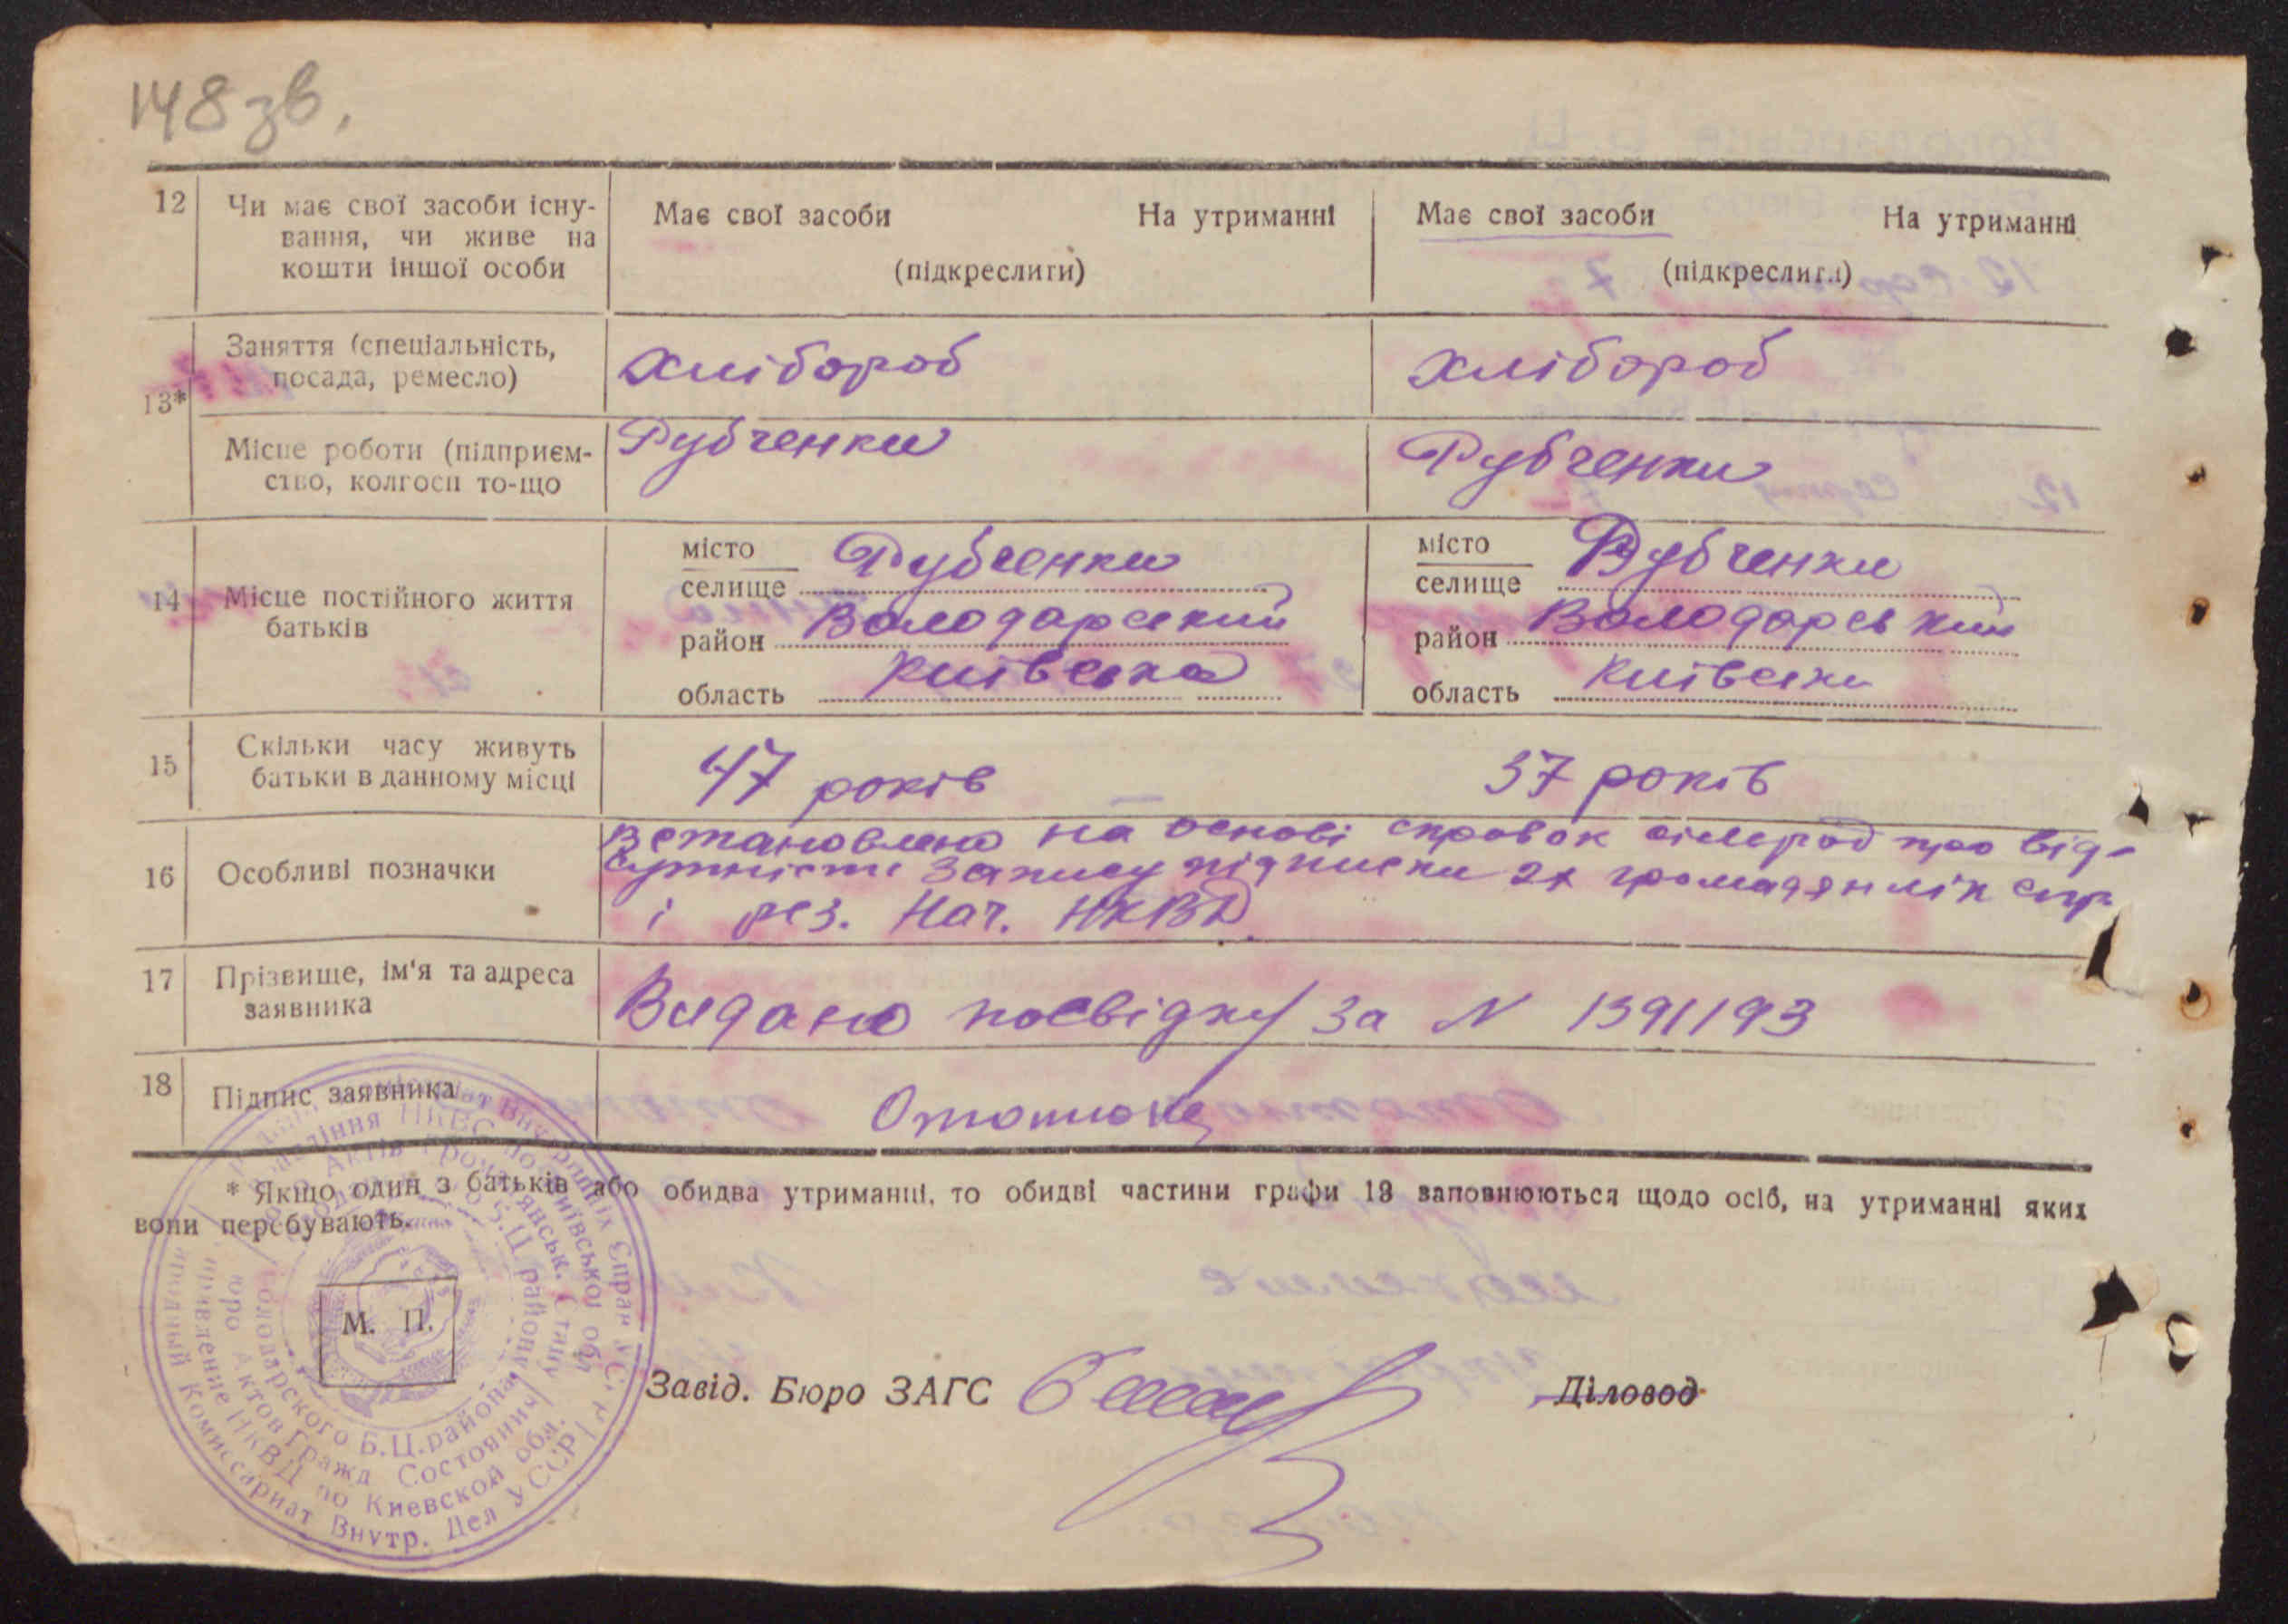 148 зв.
12 Чи має свої засоби існу- Має свої засоби На утриманні Має свої засоби На утриманні
вання, чи живе на
кошти іншої особи (підкреслити) (підкреслити)
13* Заняття (спеціальність, хлібороб хлібороб
посада, ремесло)
Місце роботи (підприєм- Рубченки Рубченки
ство, колгосп то-що
14 Місце постійного життя
батьків
місто Рубченки місто Рубченки
селище селище
район Володарський район Володарський
область київська область київська
15 Скільки часу живуть 47 років 37 років
батьки в данному місці
16 Особливі позначки
Встановлено на основі справок сільрад про від-
сутність запису підписки 2х громадян
і рез. Нач. НКВД
17 Прізвище, ім'я та адреса
заявника
Видано посвідку за N 1391193
18 Підпис заявника
* Якщо один з батьків або обидва утриманці, то обидві частини графи 13 заповнюються щодо осіб, на утриманні яких
вони перебувають.
М. П.
Завід. Бюро ЗАГС Діловод
Комиссариат Внутр. Дел УССР
НКВД по Киевской обл.
Актов Гражд Состояния
Б.Ц. района